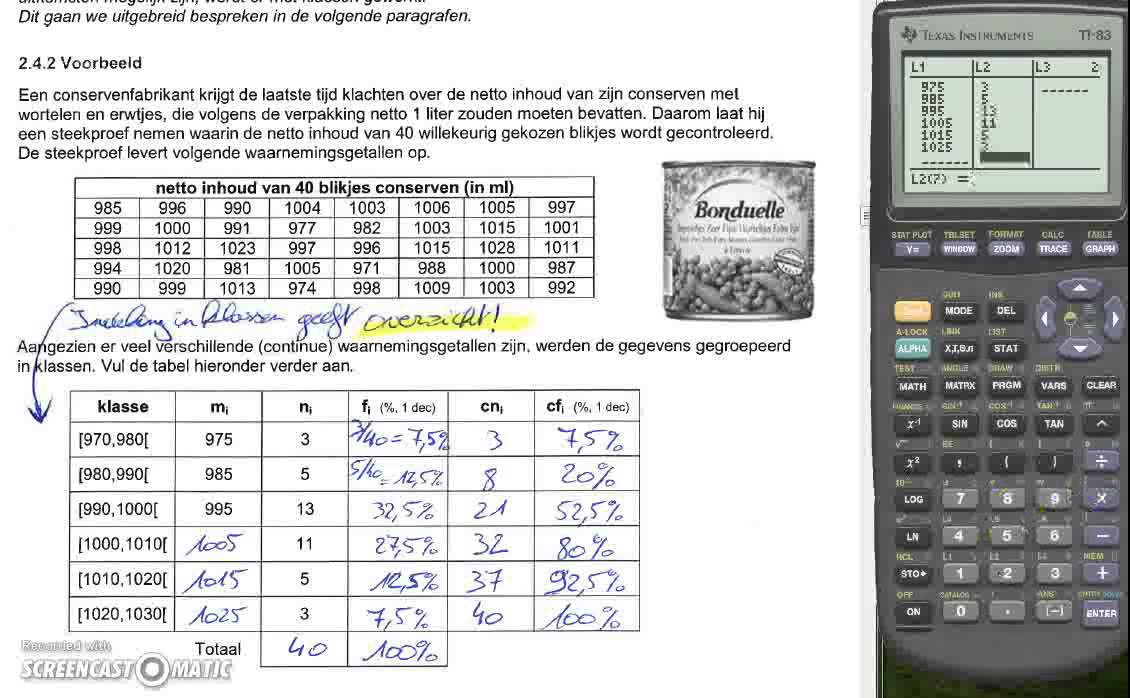 Dit gaan we uitgebreid bespreken in de volgende paragrafen.
2.4.2 Voorbeeld
Een conservenfabrikant krijgt de laatste tijd klachten over de netto inhoud van zijn conserven met
wortelen en erwtjes, die volgens de verpakking netto 1 liter zouden moeten bevatten. Daarom laat hij
een steekproef nemen waarin de netto inhoud van 40 willekeurig gekozen blikjes wordt gecontroleerd.
De steekproef levert volgende waarnemingsgetallen op.
netto inhoud van 40 blikjes conserven (in ml)
985 996 990 1004 1003 1006 1005 997
999 1000 991 977 982 1003 1015 1001
998 1012 1023 997 996 1015 1028 1011
994 1020 981 1005 971 988 1000 987
990 999 1013 974 998 1009 1003 992
Bonduelle
Indeling in klassen geeft overzicht!
Aangezien er veel verschillende (continue) waarnemingsgetallen zijn, werden de gegevens gegroepeerd
in klassen. Vul de tabel hieronder verder aan.
klasse mi ni fi (%, 1 dec) cni cfi (%, 1 dec)
[970,980[ 975 3 3/40 = 7,5% 3 7,5%
[980,990[ 985 5 5/40 = 12,5% 8 20%
[990,1000[ 995 13 32,5% 21 52,5%
[1000,1010[ 1005 11 27,5% 32 80%
[1010,1020[ 1015 5 12,5% 37 92,5%
[1020,1030[ 1025 3 7,5% 40 100%
Totaal 40 100%
Recorded with
SCREENCAST O MATIC
TEXAS INSTRUMENTS TI-83
L1 L2 L3 2
975 3
985 5
995 13
1005 11
1015 5
1025 3
L2(7) =
STAT PLOT TBLSET FORMAT CALC TABLE
Y= WINDOW ZOOM TRACE GRAPH
QUIT INS
MODE DEL
A-LOCK LINK LIST
ALPHA X,T,Θ,n STAT
TEST ANGLE DRAW DISTR
MATH MATRX PRGM VARS CLEAR
x-1 SIN COS TAN ^
x² , ( ) ÷
LOG 7 8 9 ×
LN 4 5 6 −
RCL L1 L2 L3 MEM
STO► 1 2 3 +
OFF CATALOG ANS
ON 0 . (−) ENTER